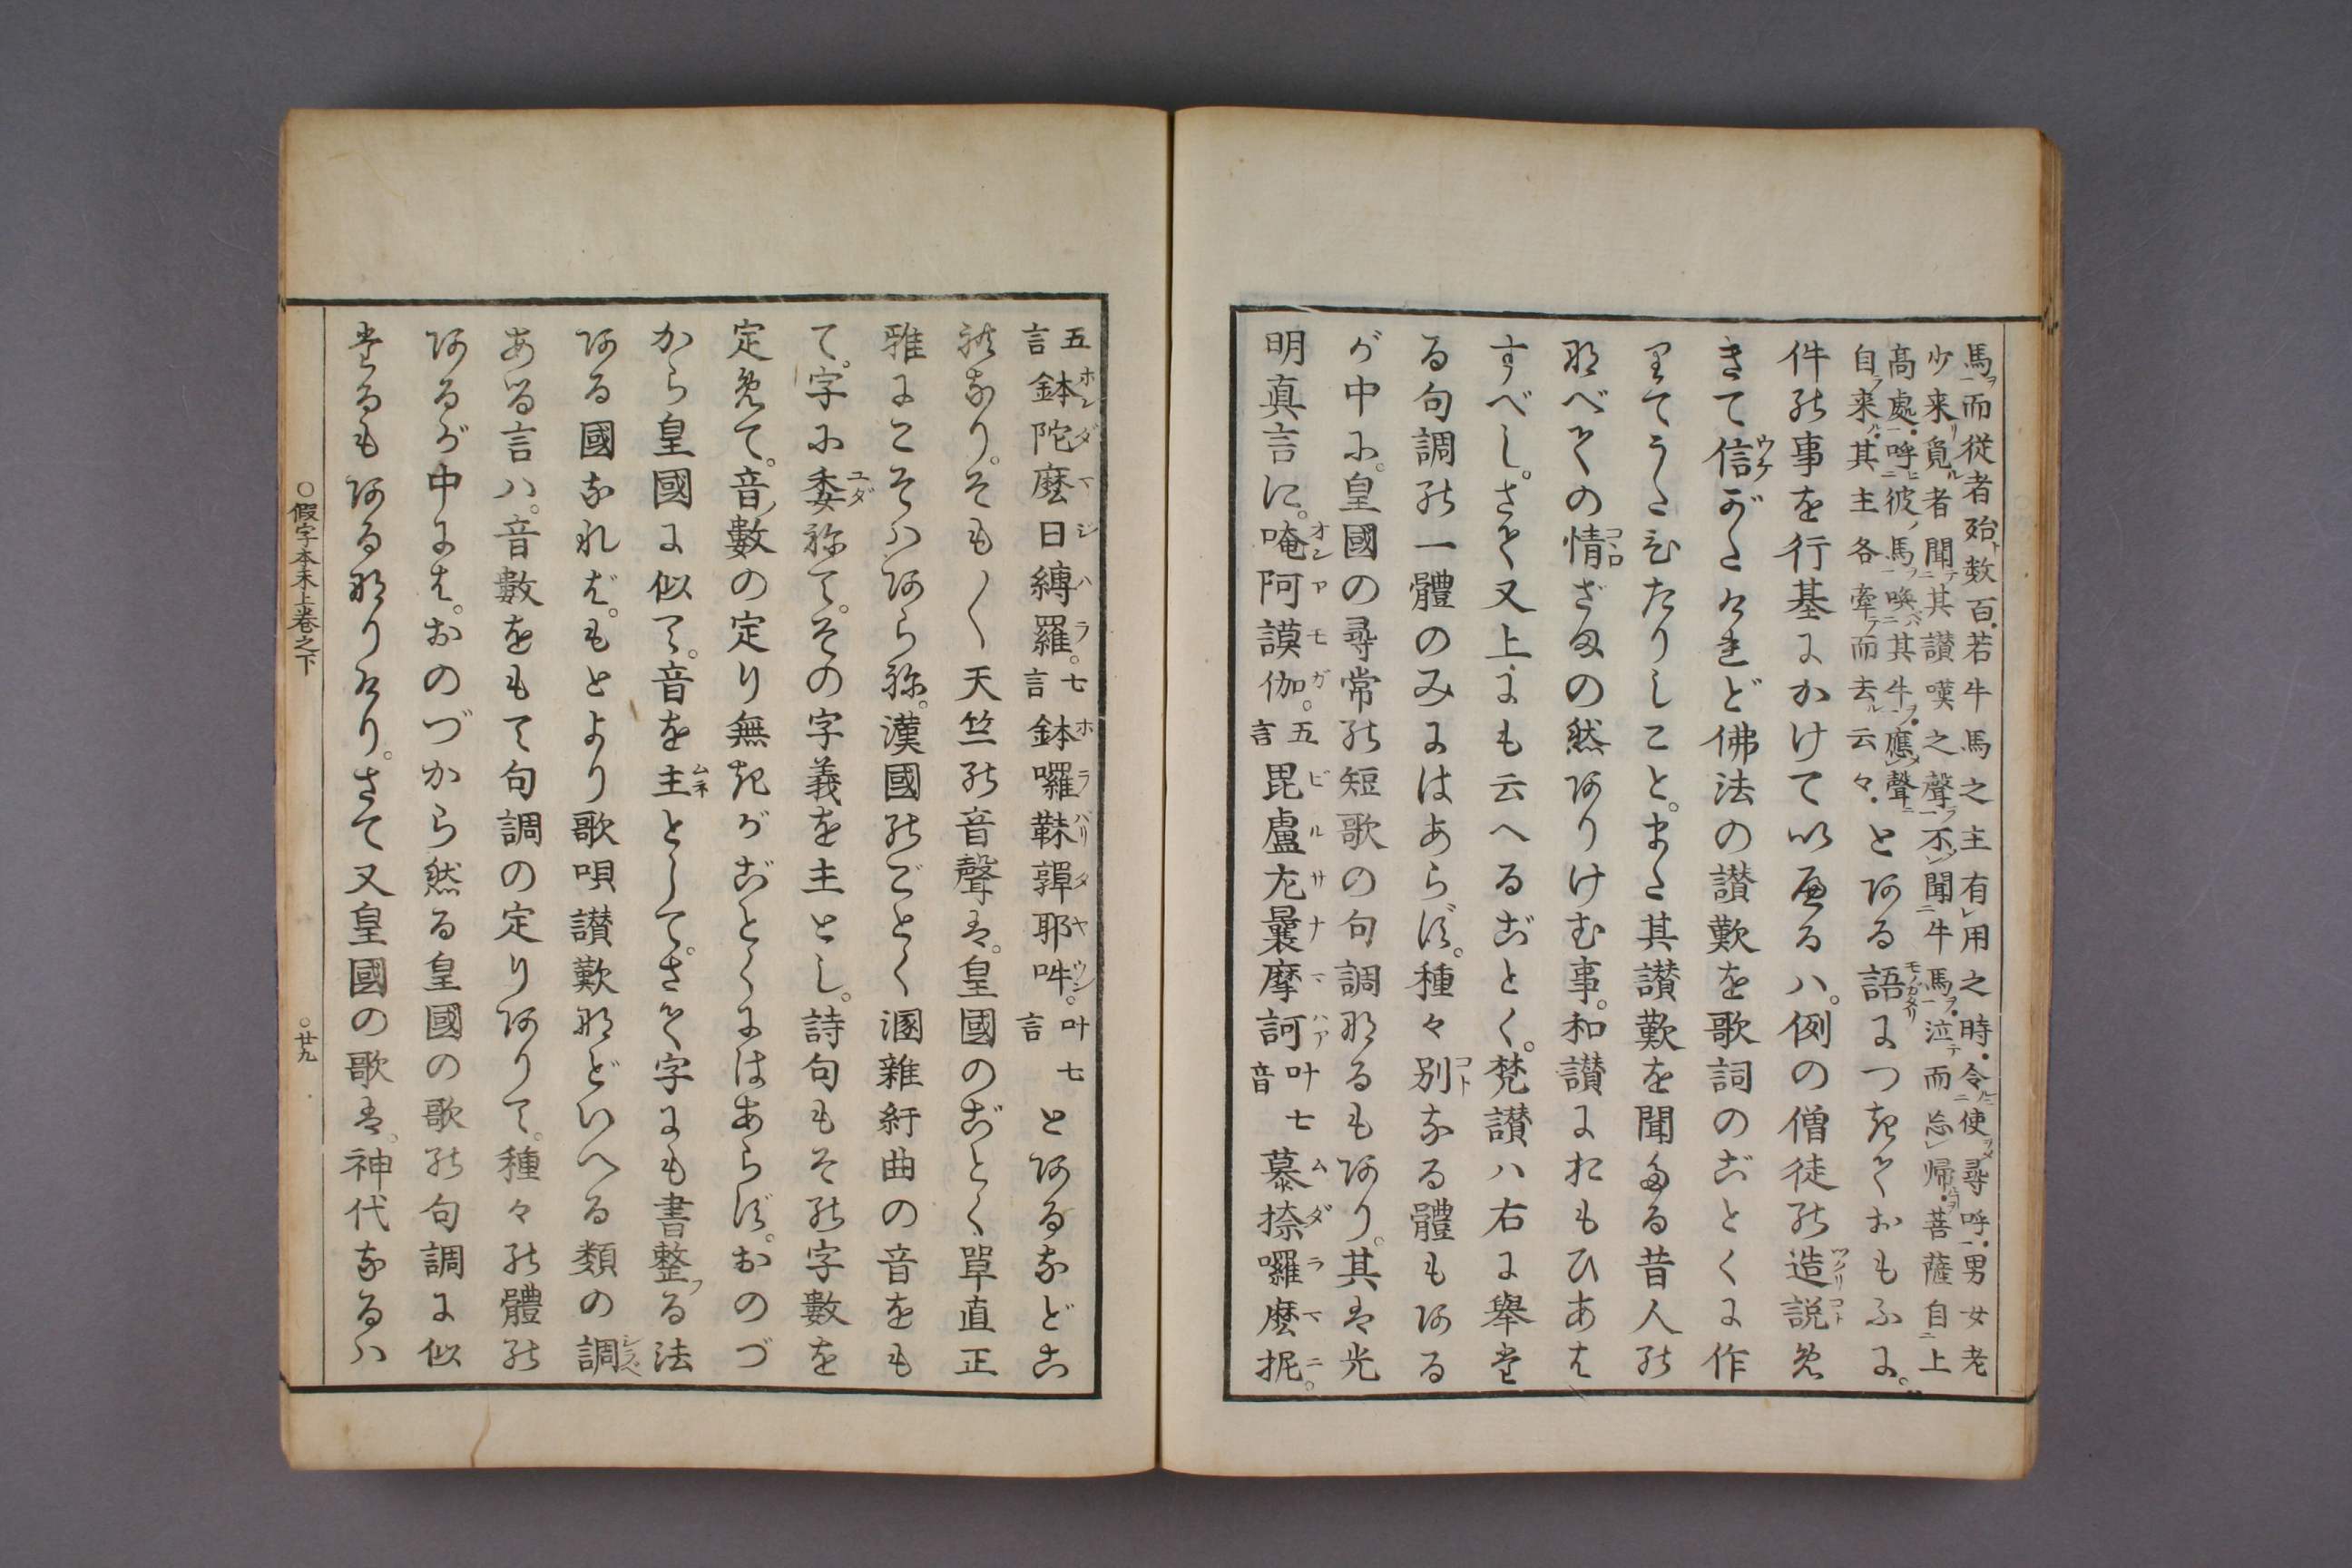 馬ヲ而従者殆ト数百.若牛馬之主有用之時.令使尋呼.男女老
少来リ覓ル者聞其讃嘆之聲不聞牛馬ヲ.泣テ而忘帰.菩薩自上
髙處.呼ヒ彼ノ馬ヲ喚ベハ其牛ヲ.應聲ニ
自来ル.其主各牽テ而去ル云々.とある語につきておもふに。
件の事を行基にかけて以へるハ。例の僧徒の造説め
きて信がたけれど佛法の讃歎を歌詞のごとくに作
りてうたひたりしこと。また其讃歎を聞たる昔人の
なべての情ざまの然ありけむ事。和讃におもひあは
すべし。さて又上にも云へるごとく。梵讃ハ右に舉た
る句調の一體のみにはあらず。種々別なる體もある
が中に。皇國の尋常の短歌の句調なるもあり。其は光
明真言に。唵阿謨伽。五言毘盧尢曩摩訶叶七音慕捺囉麽抳。
五言鉢陀麽日縛羅。七言鉢囉韎韗耶吽。叶七言とあるなどこ
れなり。そも〳〵天竺の音聲は。皇國のごとく單直正
雅にこそハあらね。漢國のごとく溷雜紆曲の音をも
て。字に委ねて。その字義を主とし。詩句もその字數を
定めて。音ノ數の定り無きがごとくにはあらず。おのづ
から皇國に似て。音を主として。さて字にも書整フる法
ある國なれば。もとより歌唄讃歎などいへる類の調
ある言ハ。音數をもて句調の定りありて。種々の體の
あるが中には。おのづから然る皇國の歌の句調に似
たるもあるなりけり。さて又皇國の歌は。神代なるハ
○假字本末上巻之下
○廿九